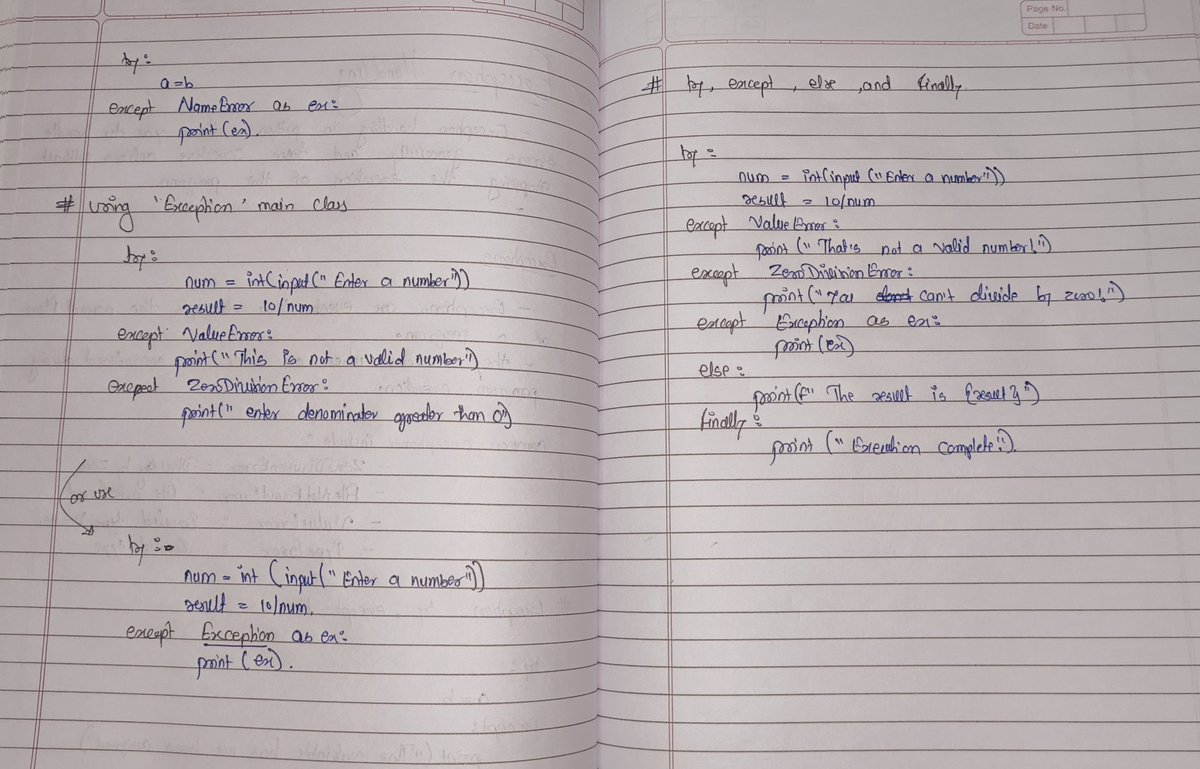 try:
a=b
except NameError as ex:
print(ex).
# using 'Exception' main class
try:
num = int(input("Enter a number"))
result = 10/num
except ValueError:
print("This is not a valid number")
except ZeroDivisionError:
print("enter denominator greater than 0")
or use
try:
num = int (input("Enter a number"))
result = 10/num.
except Exception as ex:
print (ex).
Page No.
Date
# try, except, else, and finally
try:
num = int(input ("Enter a number"))
result = 10/num
except ValueError:
print ("That's not a valid number!")
except ZeroDivisionError:
print("You can't divide by zero!")
except Exception as ex:
print (ex)
else:
print(f" The result is {result}")
finally:
print ("Execution Complete!").